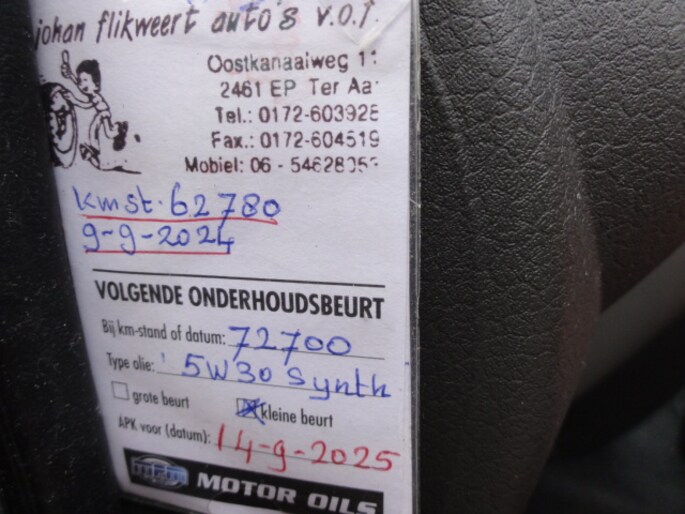 johan flikweert auto's v.o.f.
Oostkanaalweg 11
2461 EP Ter Aar
Tel.: 0172-603928
Fax.: 0172-604519
Mobiel: 06 - 54628053
kmst. 62780
9-9-2024
VOLGENDE ONDERHOUDSBEURT
Bij km-stand of datum: 72700
Type olie: 5W30 Synth
grote beurt kleine beurt
APK voor (datum): 14-9-2025
MOTOR OILS